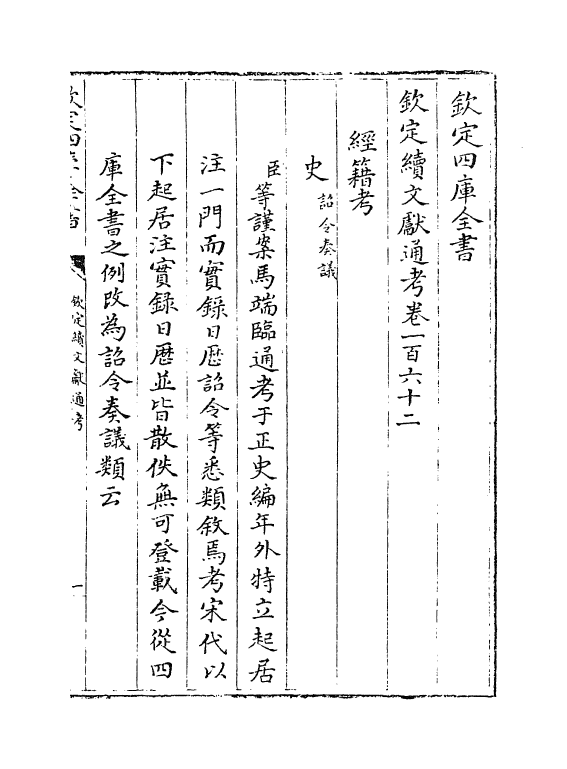 欽定四庫全書
欽定續文獻通考卷一百六十二
經籍考
史 詔令奏議
臣等謹案馬端臨通考于正史編年外特立起居
注一門而實録日歷詔令等悉類敘焉考宋代以
下起居注實録日歷並皆散佚無可登載今從四
庫全書之例改為詔令奏議類云
欽定四庫全書
欽定續文獻通考
一